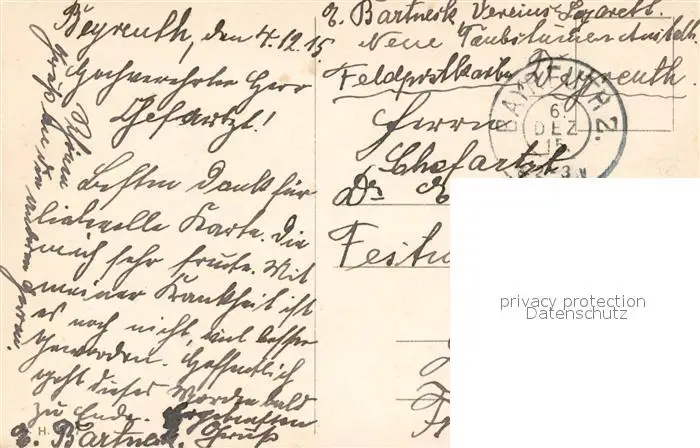 Beyreuth, den 4.12.15.
Hochverehrter Herr
Chefarzt!
Besten Dank für
liebvolle Karte. Die
mich sehr freute. Mit
meiner Krankheit ist
es noch nicht, viel besser
geworden. Hoffentlich
geht dieses Morden bald
zu Ende. Ergebensten
Gruß
E. Bartneck.
H.
Bartneck Vereins Lazarett.
Neue Taubstummenanstalt.
Feldpostkarte Beyreuth.
BAYREUTH 2.
6.
DEZ
15
Herrn
Chefartzt
Dr.
Festu
privacy protection
Datenschutz